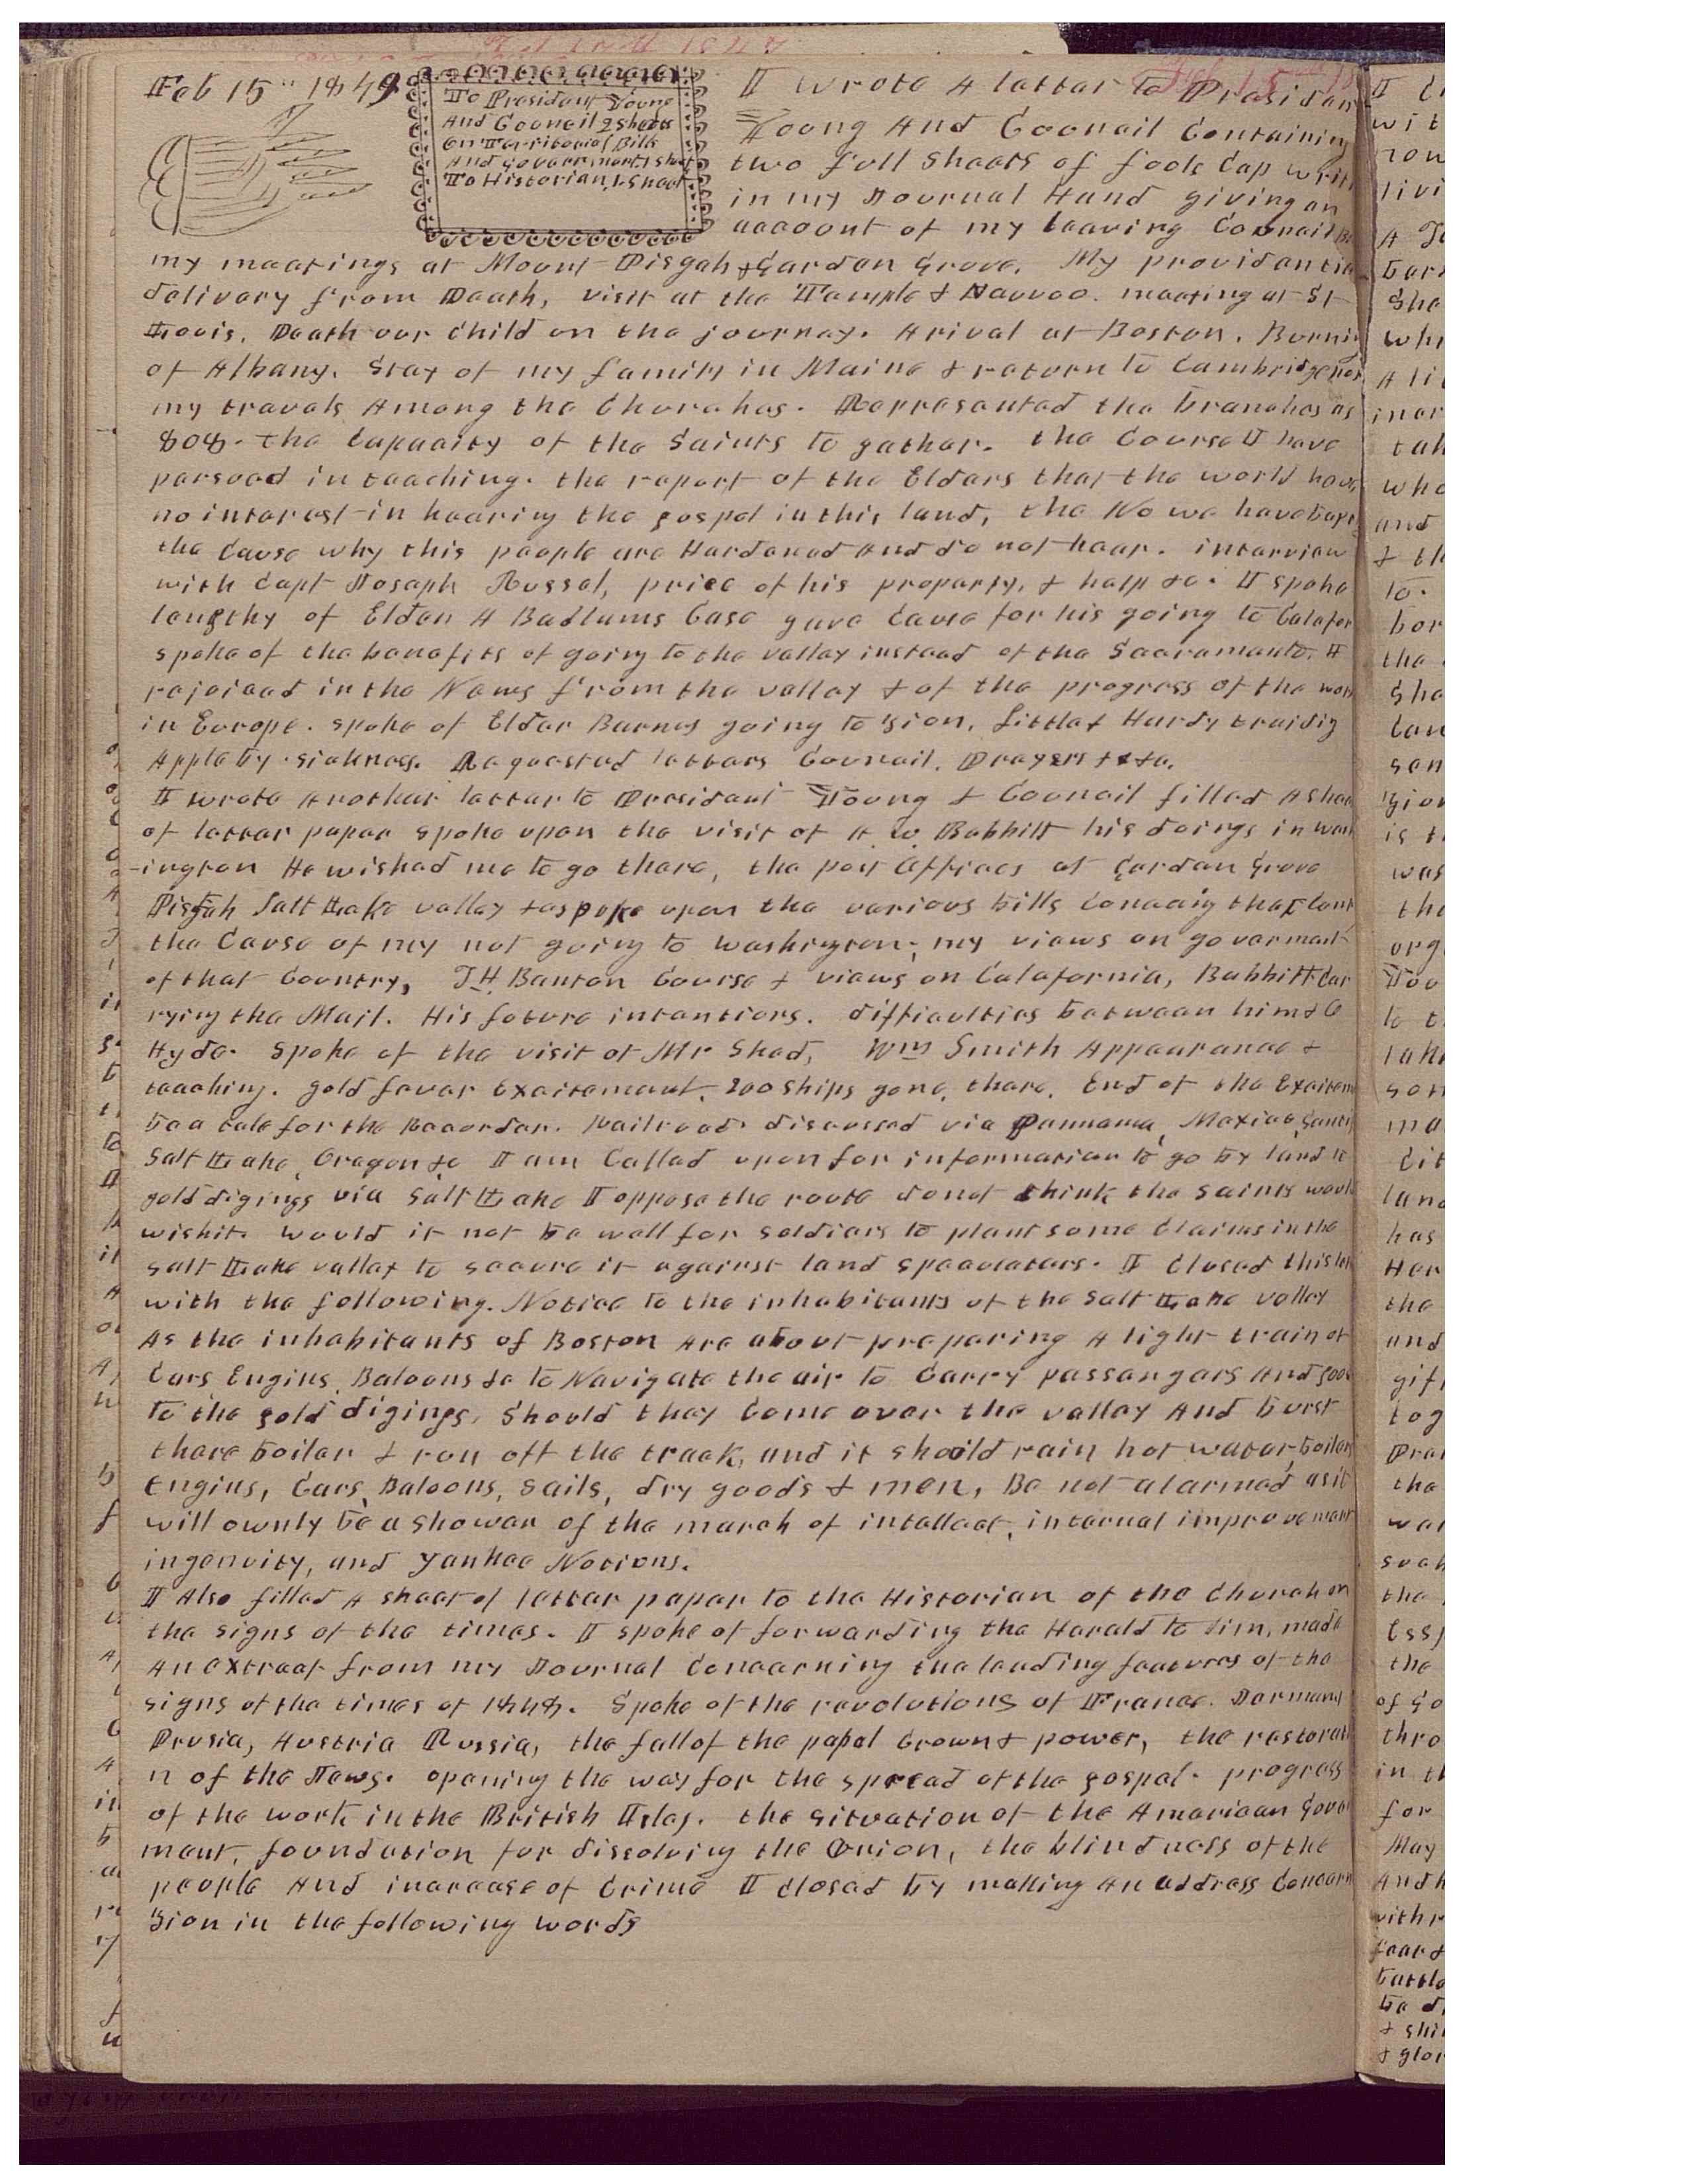 Feb 15th 1849
To President Young
And Council 2 Sheets
On Territorial Bills
And Goverment 1 sheet
To Historian 1 Sheet
I wrote A letter to Presiden
Young And Council Containing
two full Sheets of fools Cap writ
in my Journal Hand giving an
account of my leaving Council Bl
my meetings at Mount Pisgah & Garden Grove. My providentia
delivery from Death, visit at the Temple & Nauvoo. meeting at St
Louis. Death our Child on the journey. Arival at Boston. Burnin
of Albany. Stay of my family in Maine & return to Cambridgeport
my travels Among the Churches. Represented the branches as
808. the Capacity of the Saints to gather. the Course I have
persued in teaching. the report of the Elders that the world have
no interest in hearing the gospel in this land, the No we have bapt
the Cause why this people are Hardened And do not hear. interview
with Capt Joseph Russel, price of his property, & help &c. I spoke
lengthy of Elder A Badlums Case gave Cause for his going to Calafor
spoke of the benefits of going to the valley instead of the Sacramento. I
rejoiced in the News from the valley & of the progress of the work
in Europe. spoke of Elder Burnes going to Zion. Little & Hardy traidig
Appleby sickness. Requested letters Council. Prayers &c &c.
I wrote Another letter to President Young & Council filled A shee
of letter paper spoke upon the visit of A. W. Babbitt his doings in Wash
-ington He wished me to go there, the post Offices at Garden Grove
Pisgah Salt Lake valley & spoke upon the various bills Concerig that Cont
the Cause of my not going to Washington; my views on goverment
of that Country, T.H. Benton Course & views on Calafornia, Babbitt Car
rying the Mail. His future intentions. difficulties between him & O
Hyde. Spoke of the visit of Mr Shed, Wm Smith Appearance &
teaching. gold fever Excitement. 200 ships gone there. End of the Excitem
be a tale for the Recorder. Railroad discussed via Pannama, Mexico, Santi,
Salt Lake, Oregon &c I am Called upon for information to go by land to
gold digings via Salt Lake I oppose the route donot think the Saints would
wish it. would it not be well for soldiers to plant some Claims in the
Salt Lake valley to secure it against land speculators. I Closed this let
with the following. Notice to the inhabitants of the Salt Lake valley
As the inhabitants of Boston Are about preparing A light train of
Cars Engins, Baloons &c to Navigate the air to Carry passengers And good
to the gold digings, Should they Come over the valley And burst
there boiler & run off the track, and it should rain hot water, boilers
Engins, Cars, Baloons, sails, dry goods & men, Be not alarmed as it
will ownly be a shower of the march of intellect, internal improvement
ingenuity, and Yankee Notions.
I Also filled A sheet of letter paper to the Historian of the Church on
the signs of the times. I spoke of forwarding the Herald to him, made
An extract from my Journal Concerning the leading features of the
signs of the times of 1848. Spoke of the revolutions of France. Jermany
Prusia, Austria Russia, the fall of the papal Crown & power, the restorati
n of the Jews. opening the way for the spread of the gospel. progress
of the work in the British Isles. the situation of the American Gover
ment, foundation for dissolving the Union, the blindness of the
people And increase of Crime I closed by making An address Concern
Zion in the following words